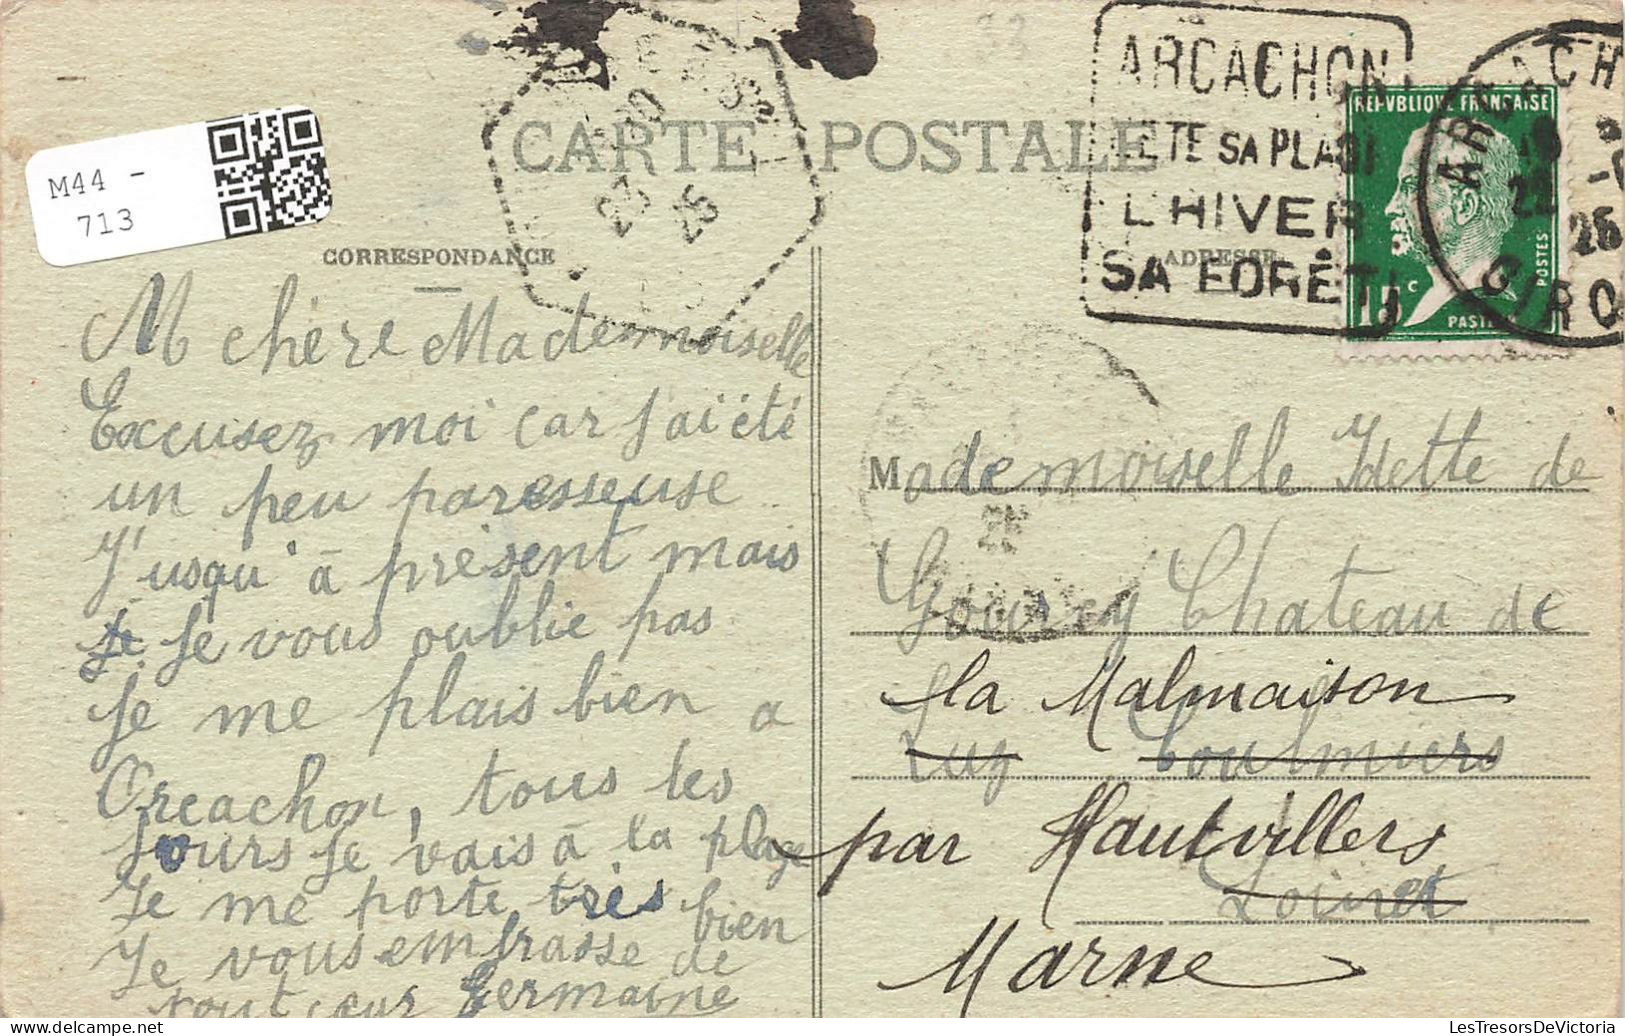 M44 -
713
CARTE POSTALE
CORRESPONDANCE
ADRESSE
ARCACHON
SA PLAGE
L'HIVER
SA FORÊT
REPVBLIQVE FRANÇAISE
POSTES
15c
PASTEUR
25
26
M chère Mademoiselle
Excusez moi car j'ai été
un peu paresseuse
J'usqu'à présent mais
je je vous oublie pas
je me plais bien a
Arcachon, tous les
jours je vais à la plage
Je me porte très bien
Je vous embrasse de
tout cœur Germaine
Mademoiselle Idette de
Gourcy Chateau de
la Malmaison
Luz Coulmiers
par Hautvillers
Loiret
Marne
LesTresorsDeVictoria